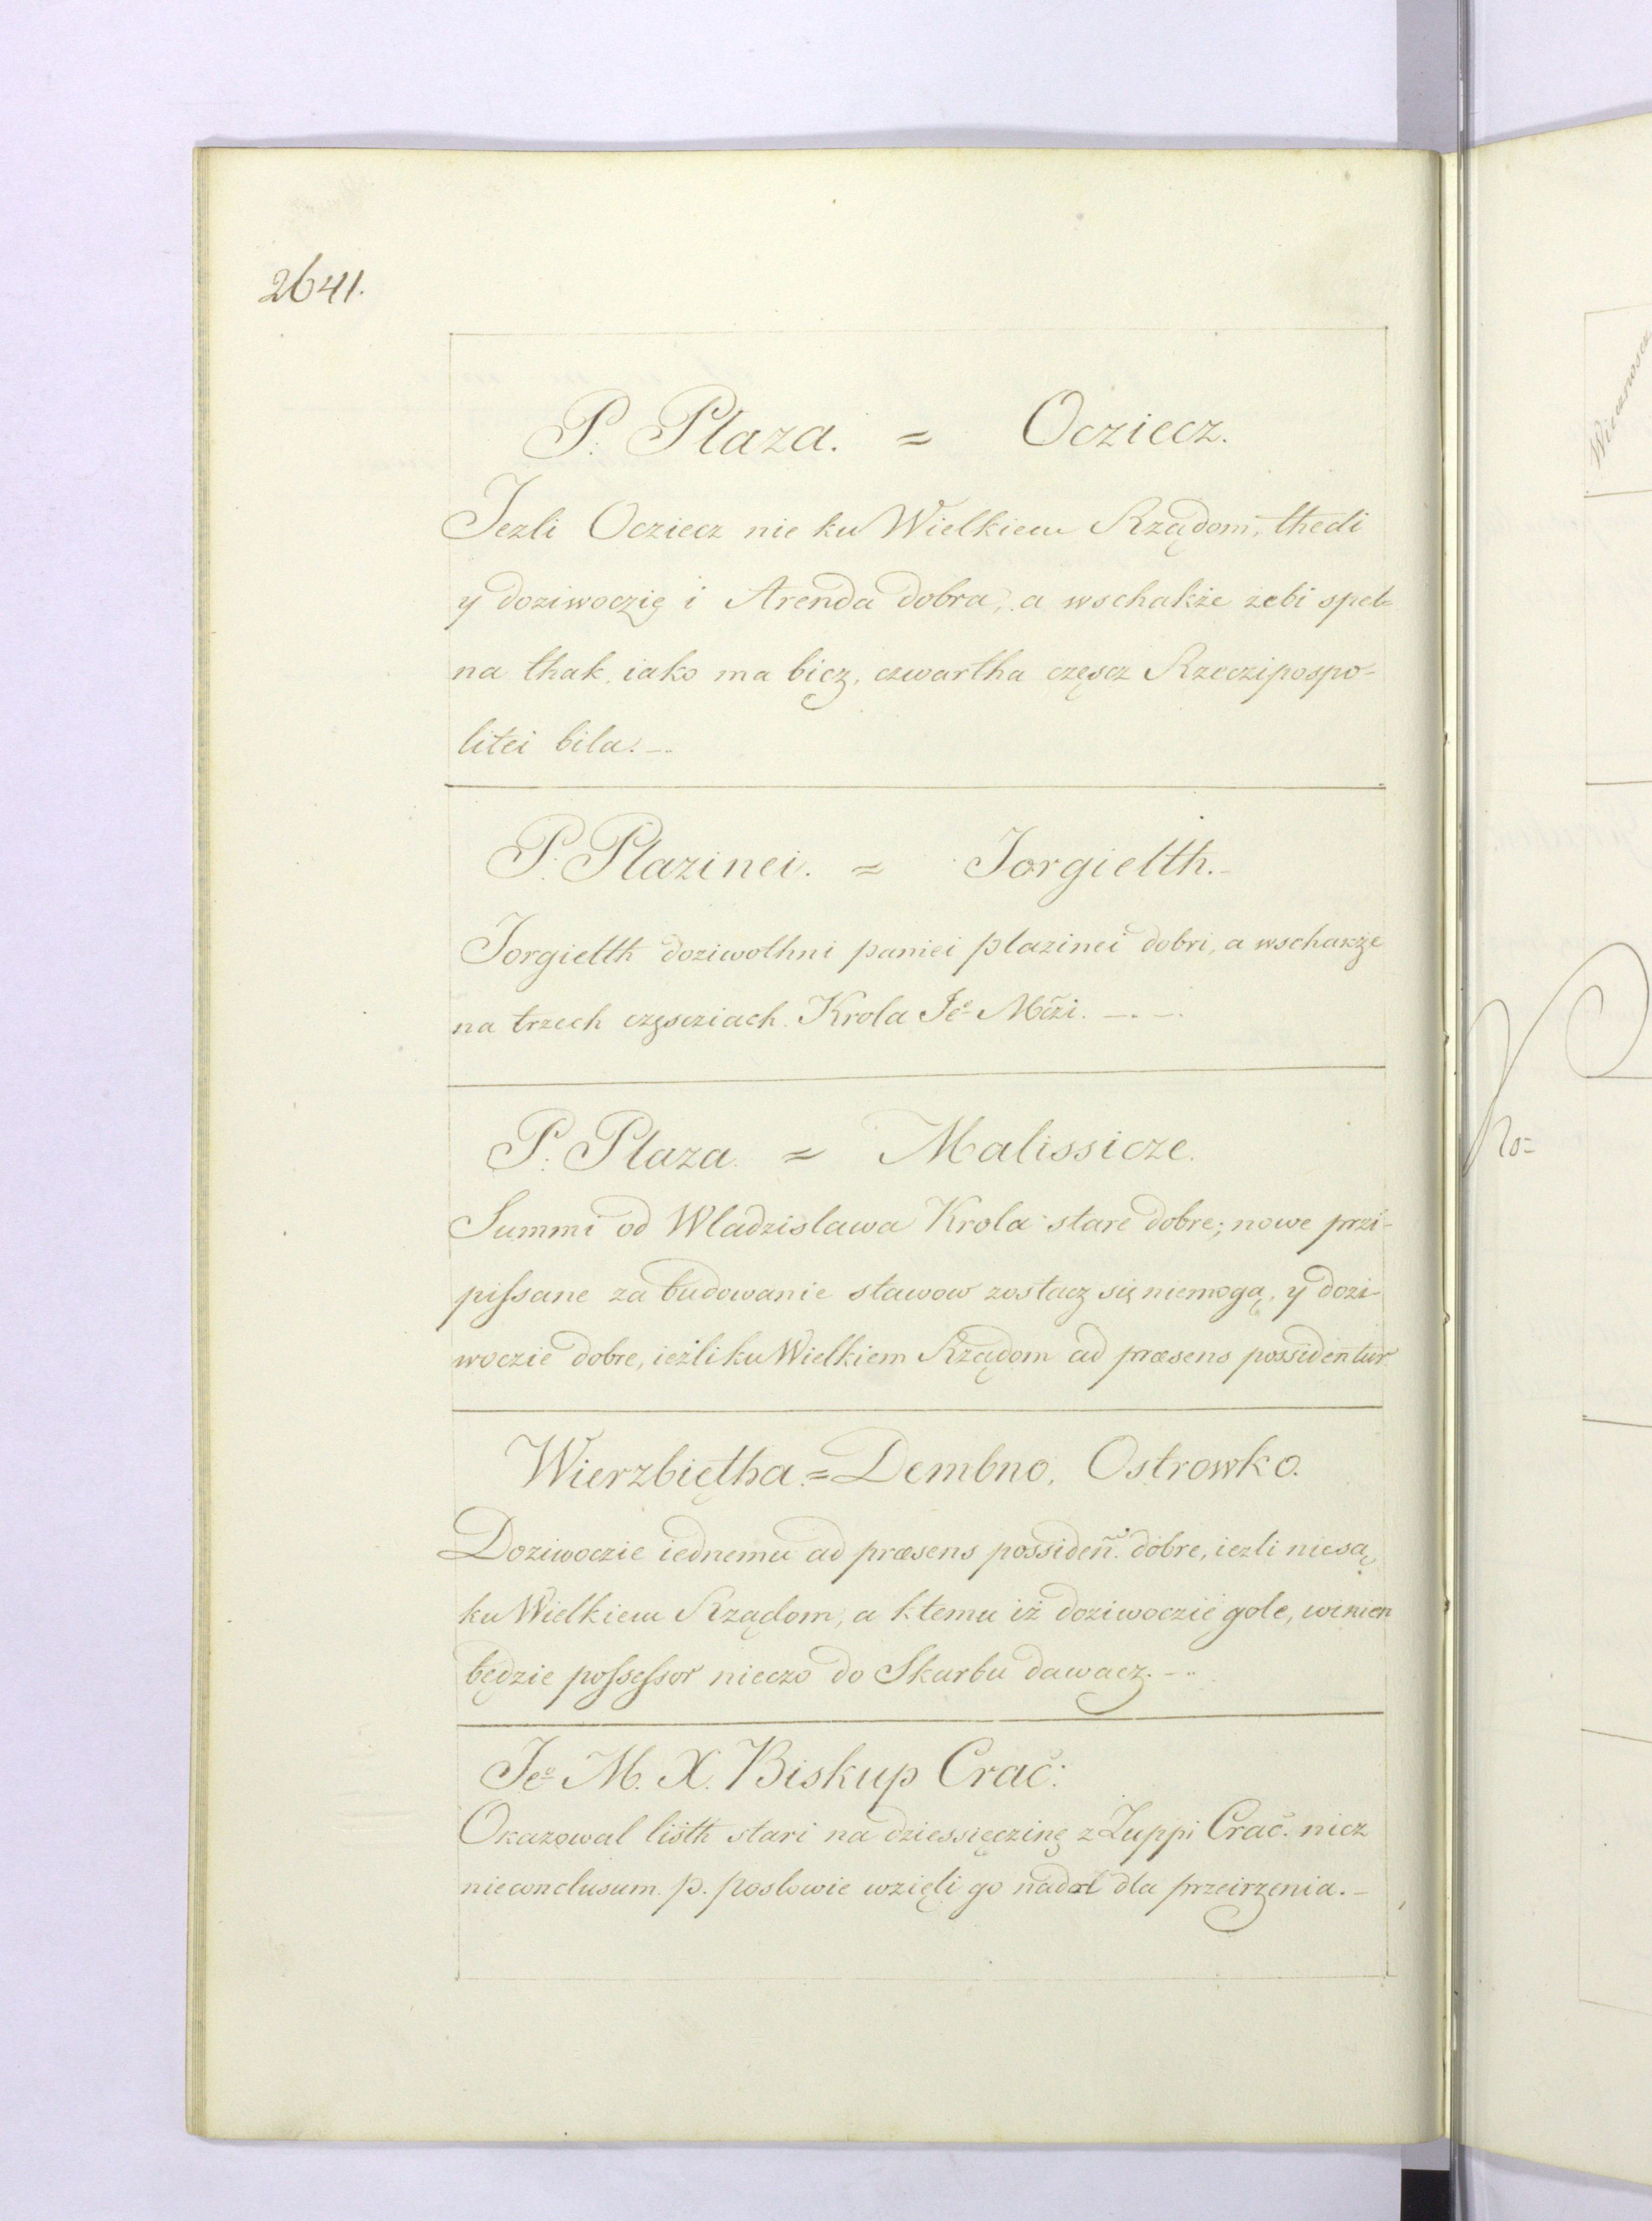 2641.
P. Plaza. = Ocziecz.
Jezli Ocziecz nie ku Wielkiem Rządom, thedi
y doziwoczię i Arenda dobra, a wschakże żebi speł-
na thak iako ma bicz, czwartha częscz Rzeczipospo-
litei bila. —
P. Plazinei. = Jorgielth. —
Jorgielth doziwothni paniei plazinei dobri, a wschakże
na trzech częscziach Krola Je Mczi. —.—.
P. Plaza = Malissicze.
Summi od Wladzislawa Krola stare dobre; nowe przi-
pissane za budowanie stawow zostacz się niemogą, y dozi-
woczie dobre, ieżli ku Wielkiem Rządom ad præsens possidentur.
Wierzbiętha. = Dembno, Ostrowko.
Doziwoczie iednemu ad præsens possideñ. dobre, iezli niesą
ku Wielkiem Rządom, a ktemu iż doziwoczie gole, winien
będzie possessor nieczo do Skarbu dawacz. —
Je M. X. Biskup Crac:
Okazowal listh stari na dziessięczinę z Zuppi Crac. nicz
nieconclusum. p. poslowie wzięli go nadal dla przeirzenia. —
Wiecznosc